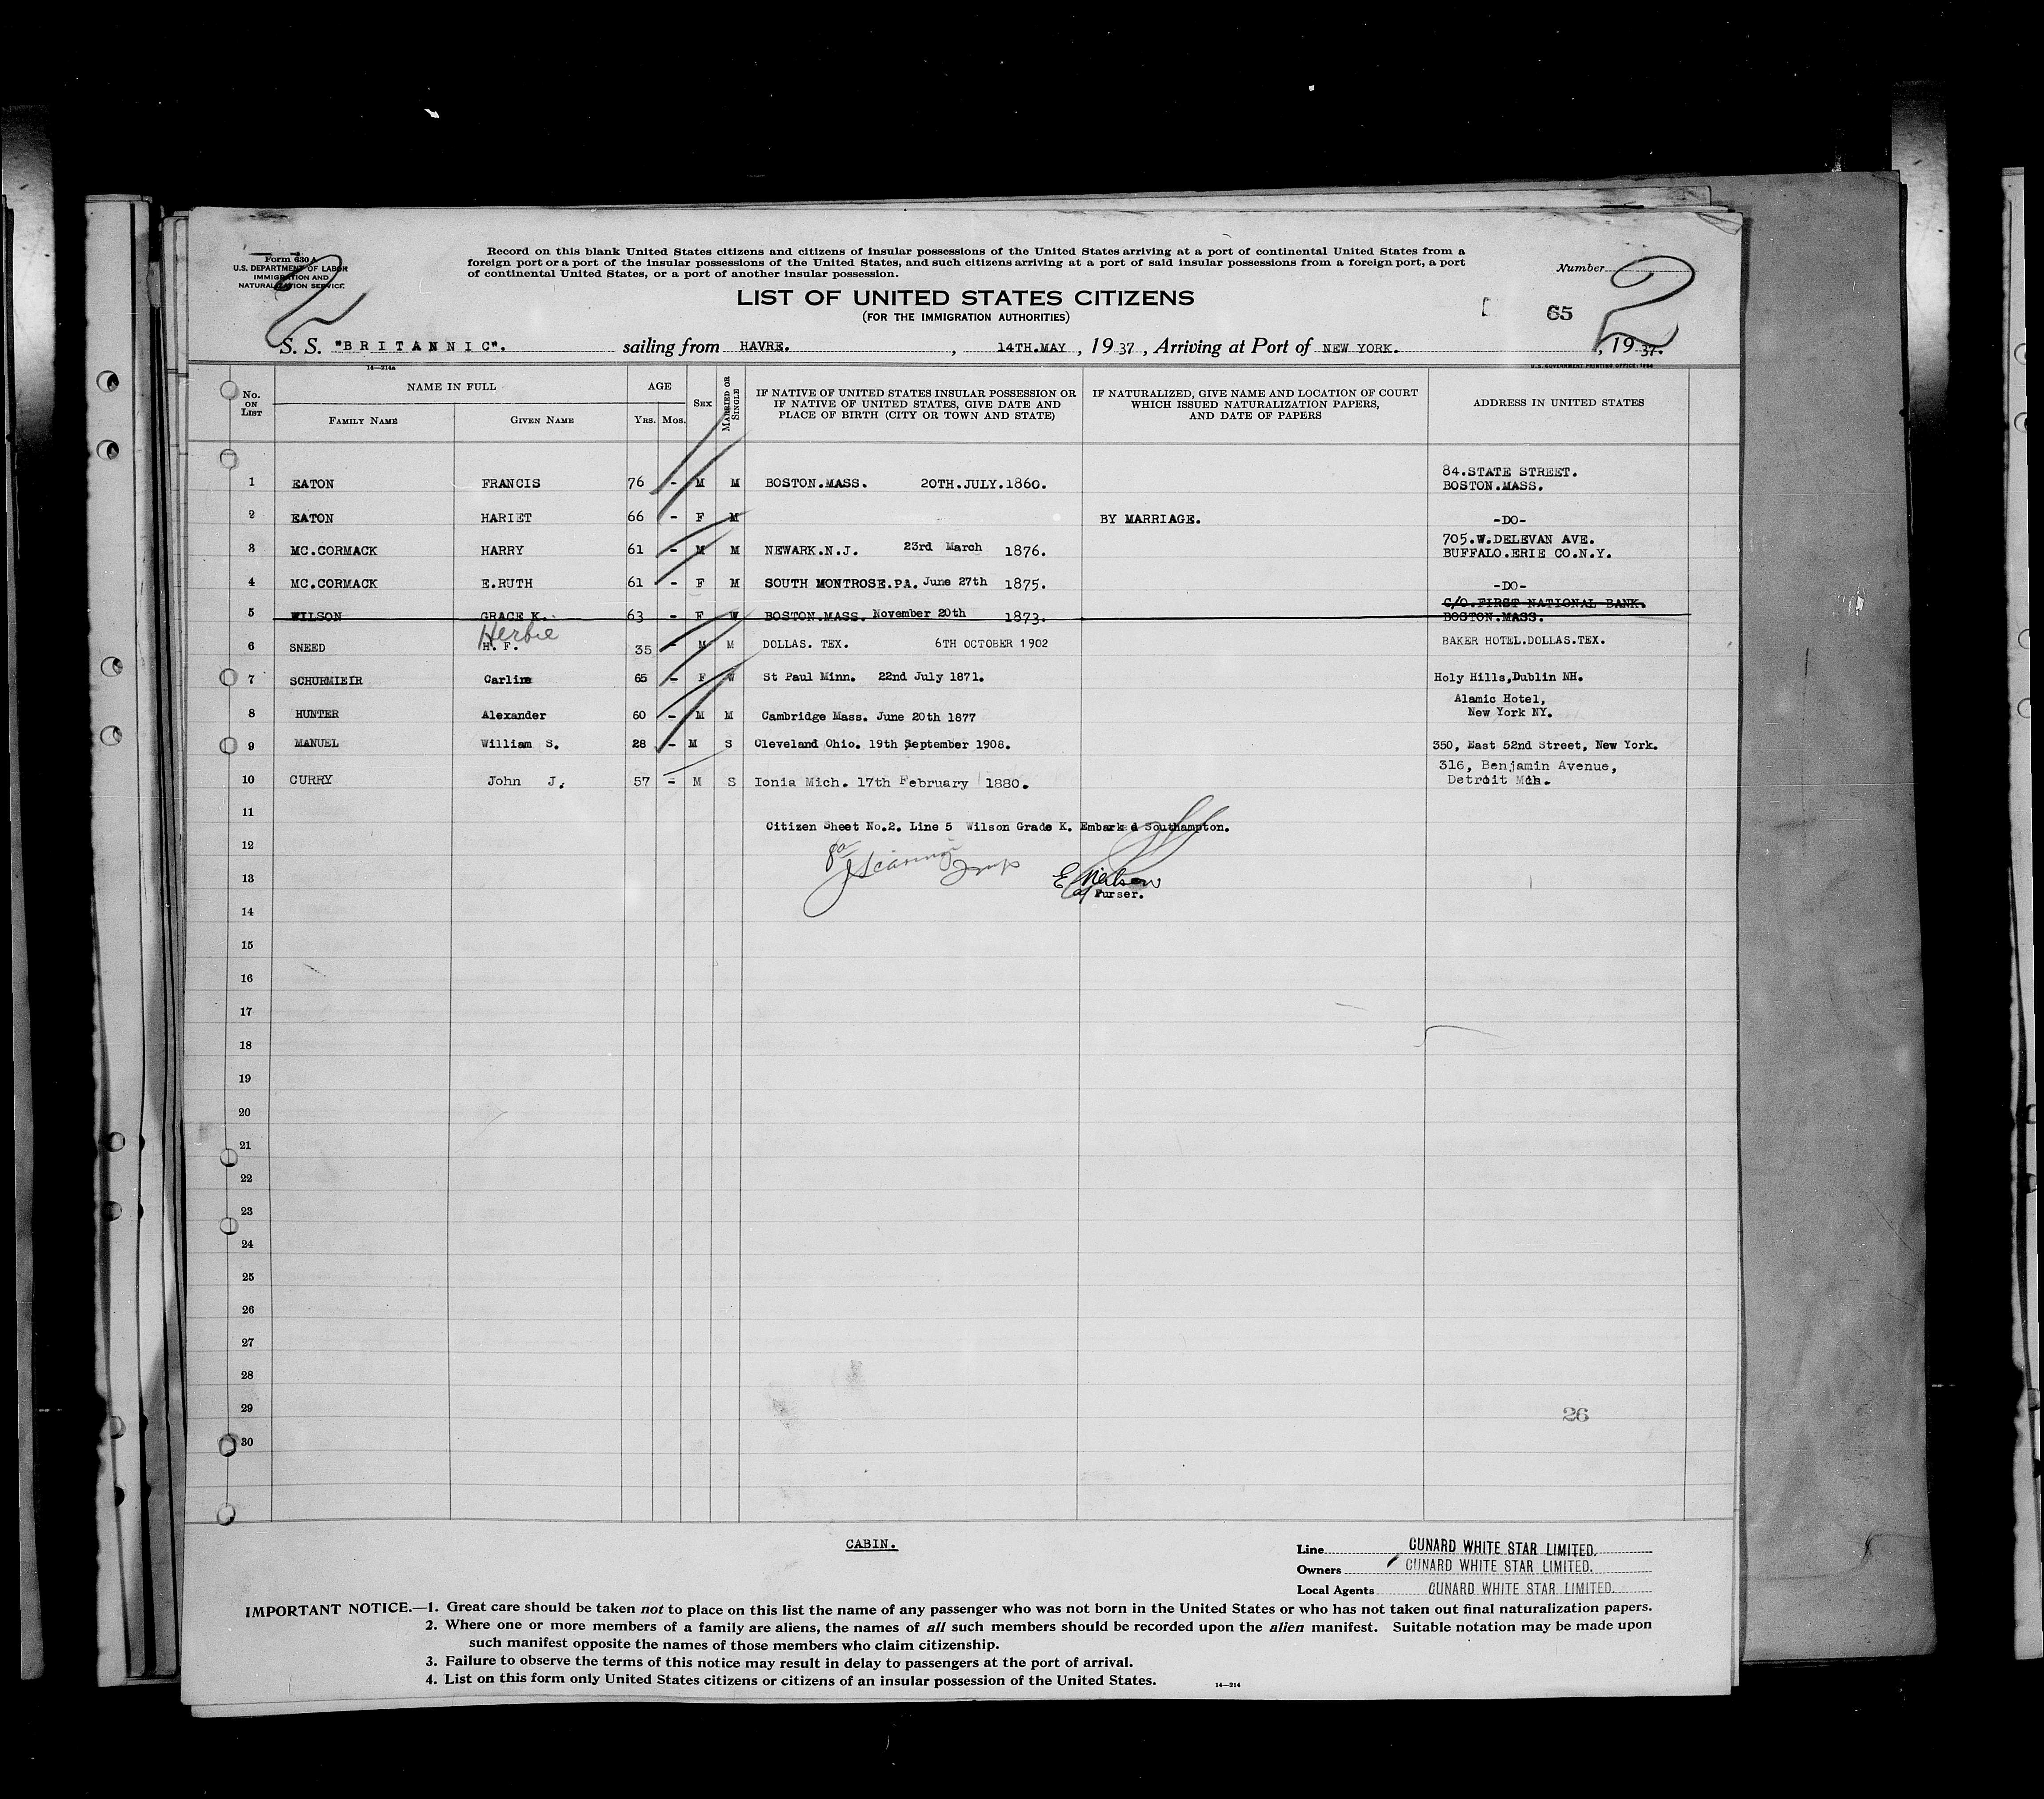 Form 630 A
U.S. DEPARTMENT OF LABOR
IMMIGRATION AND
NATURALIZATION SERVICE
2
Record on this blank United States citizens and citizens of insular possessions of the United States arriving at a port of continental United States from a
foreign port or a port of the insular possessions of the United States, and such citizens arriving at a port of said insular possessions from a foreign port, a port
of continental United States, or a port of another insular possession.
Number 2
LIST OF UNITED STATES CITIZENS
(FOR THE IMMIGRATION AUTHORITIES)
65
S. S. "BRITANNIC". sailing from HAVRE. , 14TH.MAY , 19 37 , Arriving at Port of NEW YORK. , 19 37.
14—214a
U.S. GOVERNMENT PRINTING OFFICE: 1934
No. ON LIST
NAME IN FULL
FAMILY NAME GIVEN NAME
AGE
YRS. MOS.
SEX
MARRIED OR SINGLE
IF NATIVE OF UNITED STATES INSULAR POSSESSION OR
IF NATIVE OF UNITED STATES, GIVE DATE AND
PLACE OF BIRTH (CITY OR TOWN AND STATE)
IF NATURALIZED, GIVE NAME AND LOCATION OF COURT
WHICH ISSUED NATURALIZATION PAPERS,
AND DATE OF PAPERS
ADDRESS IN UNITED STATES
84.STATE STREET.
1 EATON FRANCIS 76 - M M BOSTON.MASS. 20TH.JULY.1860. BOSTON.MASS.
2 EATON HARIET 66 - F M BY MARRIAGE. -DO-
705.W.DELEVAN AVE.
3 MC.CORMACK HARRY 61 - M M NEWARK.N.J. 23rd March 1876. BUFFALO.ERIE CO.N.Y.
4 MC.CORMACK E.RUTH 61 - F M SOUTH MONTROSE.PA. June 27th 1875. -DO-
C/O.FIRST NATIONAL BANK.
5 WILSON GRACE K. 63 - F W BOSTON.MASS. November 20th 1873. BOSTON.MASS.
Herbie
6 SNEED H. F. 35 - M M DOLLAS. TEX. 6TH OCTOBER 1902 BAKER HOTEL.DOLLAS.TEX.
7 SCHURMIEIR Carline 65 - F W St Paul Minn. 22nd July 1871. Holy Hills,Dublin NH.
Alamic Hotel,
8 HUNTER Alexander 60 - M M Cambridge Mass. June 20th 1877 New York NY.
9 MANUEL William S. 28 - M S Cleveland Ohio. 19th September 1908. 350, East 52nd Street, New York.
316, Benjamin Avenue,
10 CURRY John J. 57 - M S Ionia Mich. 17th February 1880. Detroit Mch.
11
Citizen Sheet No.2. Line 5 Wilson Grade K. Embarked Southampton.
12
13
Purser.
14
15
16
17
18
19
20
21
22
23
24
25
26
27
28
29
26
30
CABIN.
Line CUNARD WHITE STAR LIMITED.
Owners CUNARD WHITE STAR LIMITED.
Local Agents CUNARD WHITE STAR LIMITED.
IMPORTANT NOTICE.—1. Great care should be taken not to place on this list the name of any passenger who was not born in the United States or who has not taken out final naturalization papers.
2. Where one or more members of a family are aliens, the names of all such members should be recorded upon the alien manifest. Suitable notation may be made upon
such manifest opposite the names of those members who claim citizenship.
3. Failure to observe the terms of this notice may result in delay to passengers at the port of arrival.
4. List on this form only United States citizens or citizens of an insular possession of the United States.
14—214